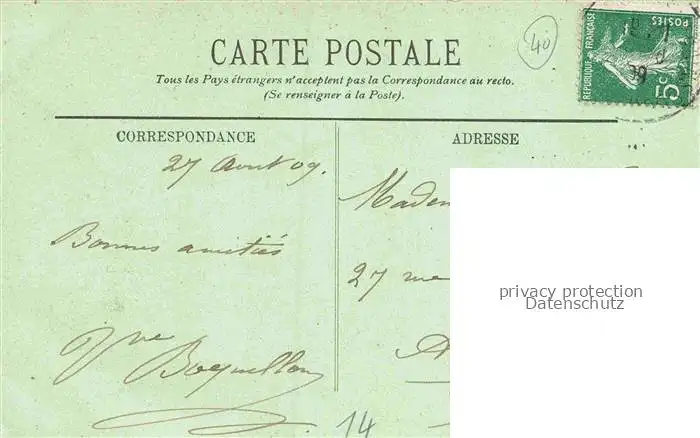 40
CARTE POSTALE
Tous les Pays étrangers n'acceptent pas la Correspondance au recto.
(Se renseigner à la Poste).
POSTES
REPUBLIQUE FRANÇAISE
5c
09
CORRESPONDANCE
ADRESSE
27 Août 09.
Bonnes amitiés
Vve Boquillon
Madem
27 rue
A
14
privacy protection
Datenschutz